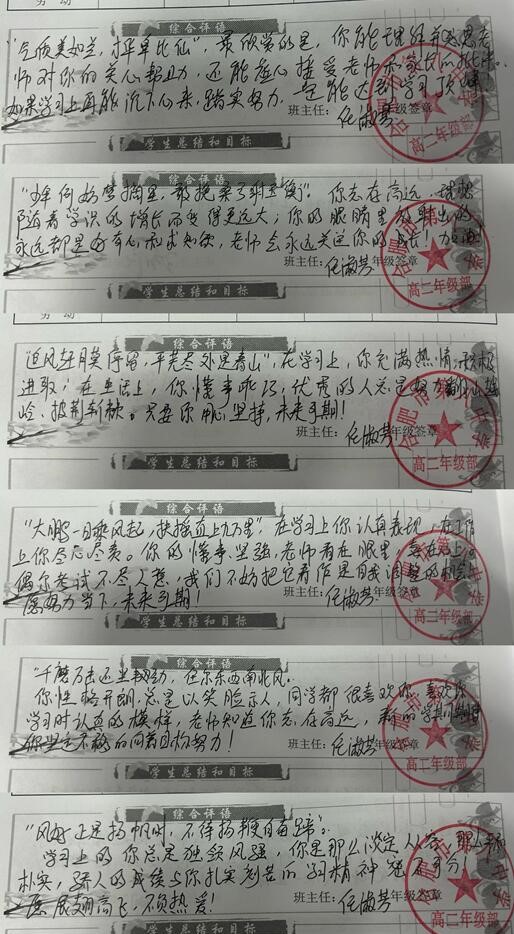 劳动
综合评语
"气质美如兰，才华阜比仙"，最欣赏的是，你能理解并感恩老
师对你的关心帮助，还能虚心接受老师和家长的批评。
如果学习上再能沉下心来，踏实努力，定能达到学习顶峰
班主任：任淑芳 年级签章
高二年级部
学生总结和目标
综合评语
"少年何妨梦摘星，敢挽桑弓射玉衡"。你志在高远，理想
随着学识的增长而变得更远大；你的眼睛里放射出的
永远都是好奇心和求知欲，老师会永远关注你的成长！加油！
班主任：任淑芳 年级签章
高二年级部
学生总结和目标
劳动
综合评语
追风赶月莫停留，平芜尽处是春山"，在学习上，你充满热情，积极
进取；在生活上，你懂事乖巧，优秀的人总是努力翻山越
岭，披荆斩棘。只要你用心坚持，未来可期！
班主任：任淑芳 年级签章
高二年级部
学生总结和目标
综合评语
"大鹏一日乘风起，扶摇直上九万里"，在学习上你认真表现，在工作
上你尽心尽责。你的懂事坚强，老师看在眼里，
偶尔考试不尽人意，我们不妨把它看作是自我调整的机会！
愿努力当下，未来可期！
班主任：任淑芳 年级签章
高二年级部
学生总结和目标
综合评语
"千磨万击还坚韧劲，任尔东西南北风。
你性格开朗，总是以笑脸示人，同学都很喜欢你，喜欢你
学习时认真的模样，老师知道你志存高远，新的学期期待
你坚定不移的向着目标努力！
班主任：任淑芳 年级签章
高二年级部
学生总结和目标
综合评语
"风好正是扬帆时，不待扬鞭自奋蹄"。
学习上的你总是独领风骚，你是那么淡定从容，那么
朴实，骄人的成绩与你扎实刻苦的学习精神密不可分！
愿展翅高飞，不负热爱！
班主任：任淑芳 年级签章
高二年级部